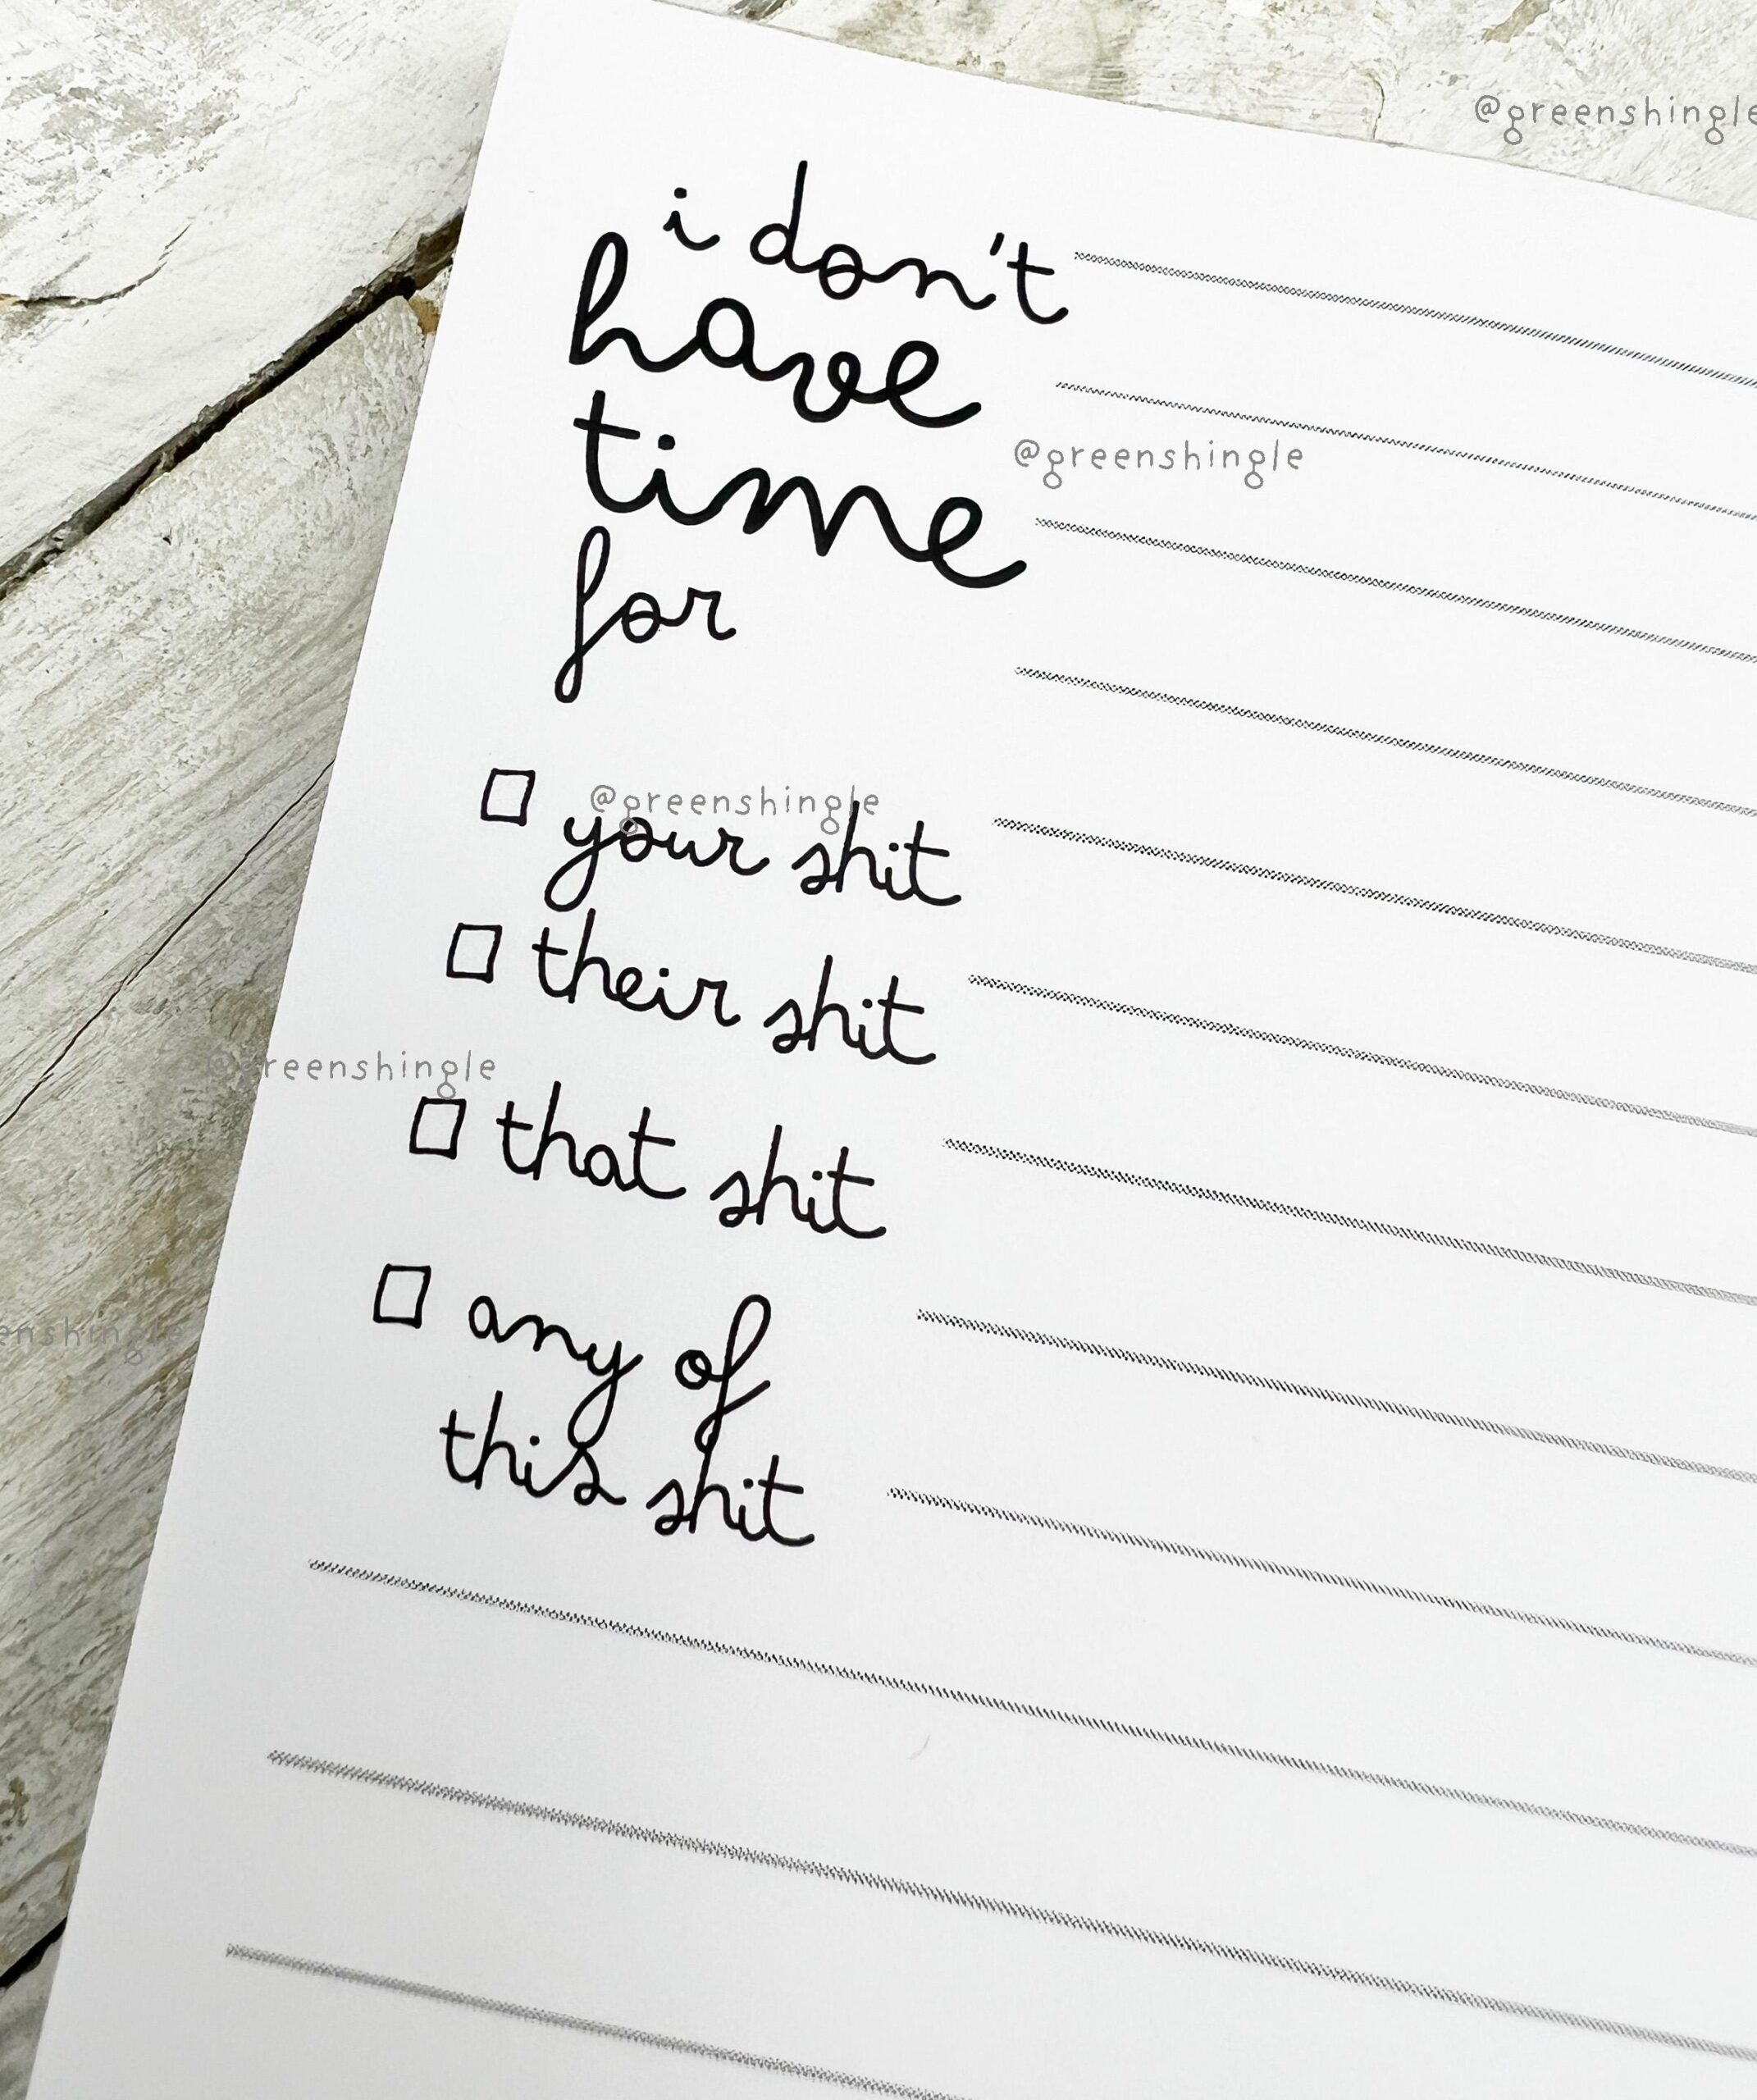 @greenshingle
i don't
have
time
for
@greenshingle
@greenshingle
your shit
their shit
@greenshingle
that shit
any of
this shit
enshingle